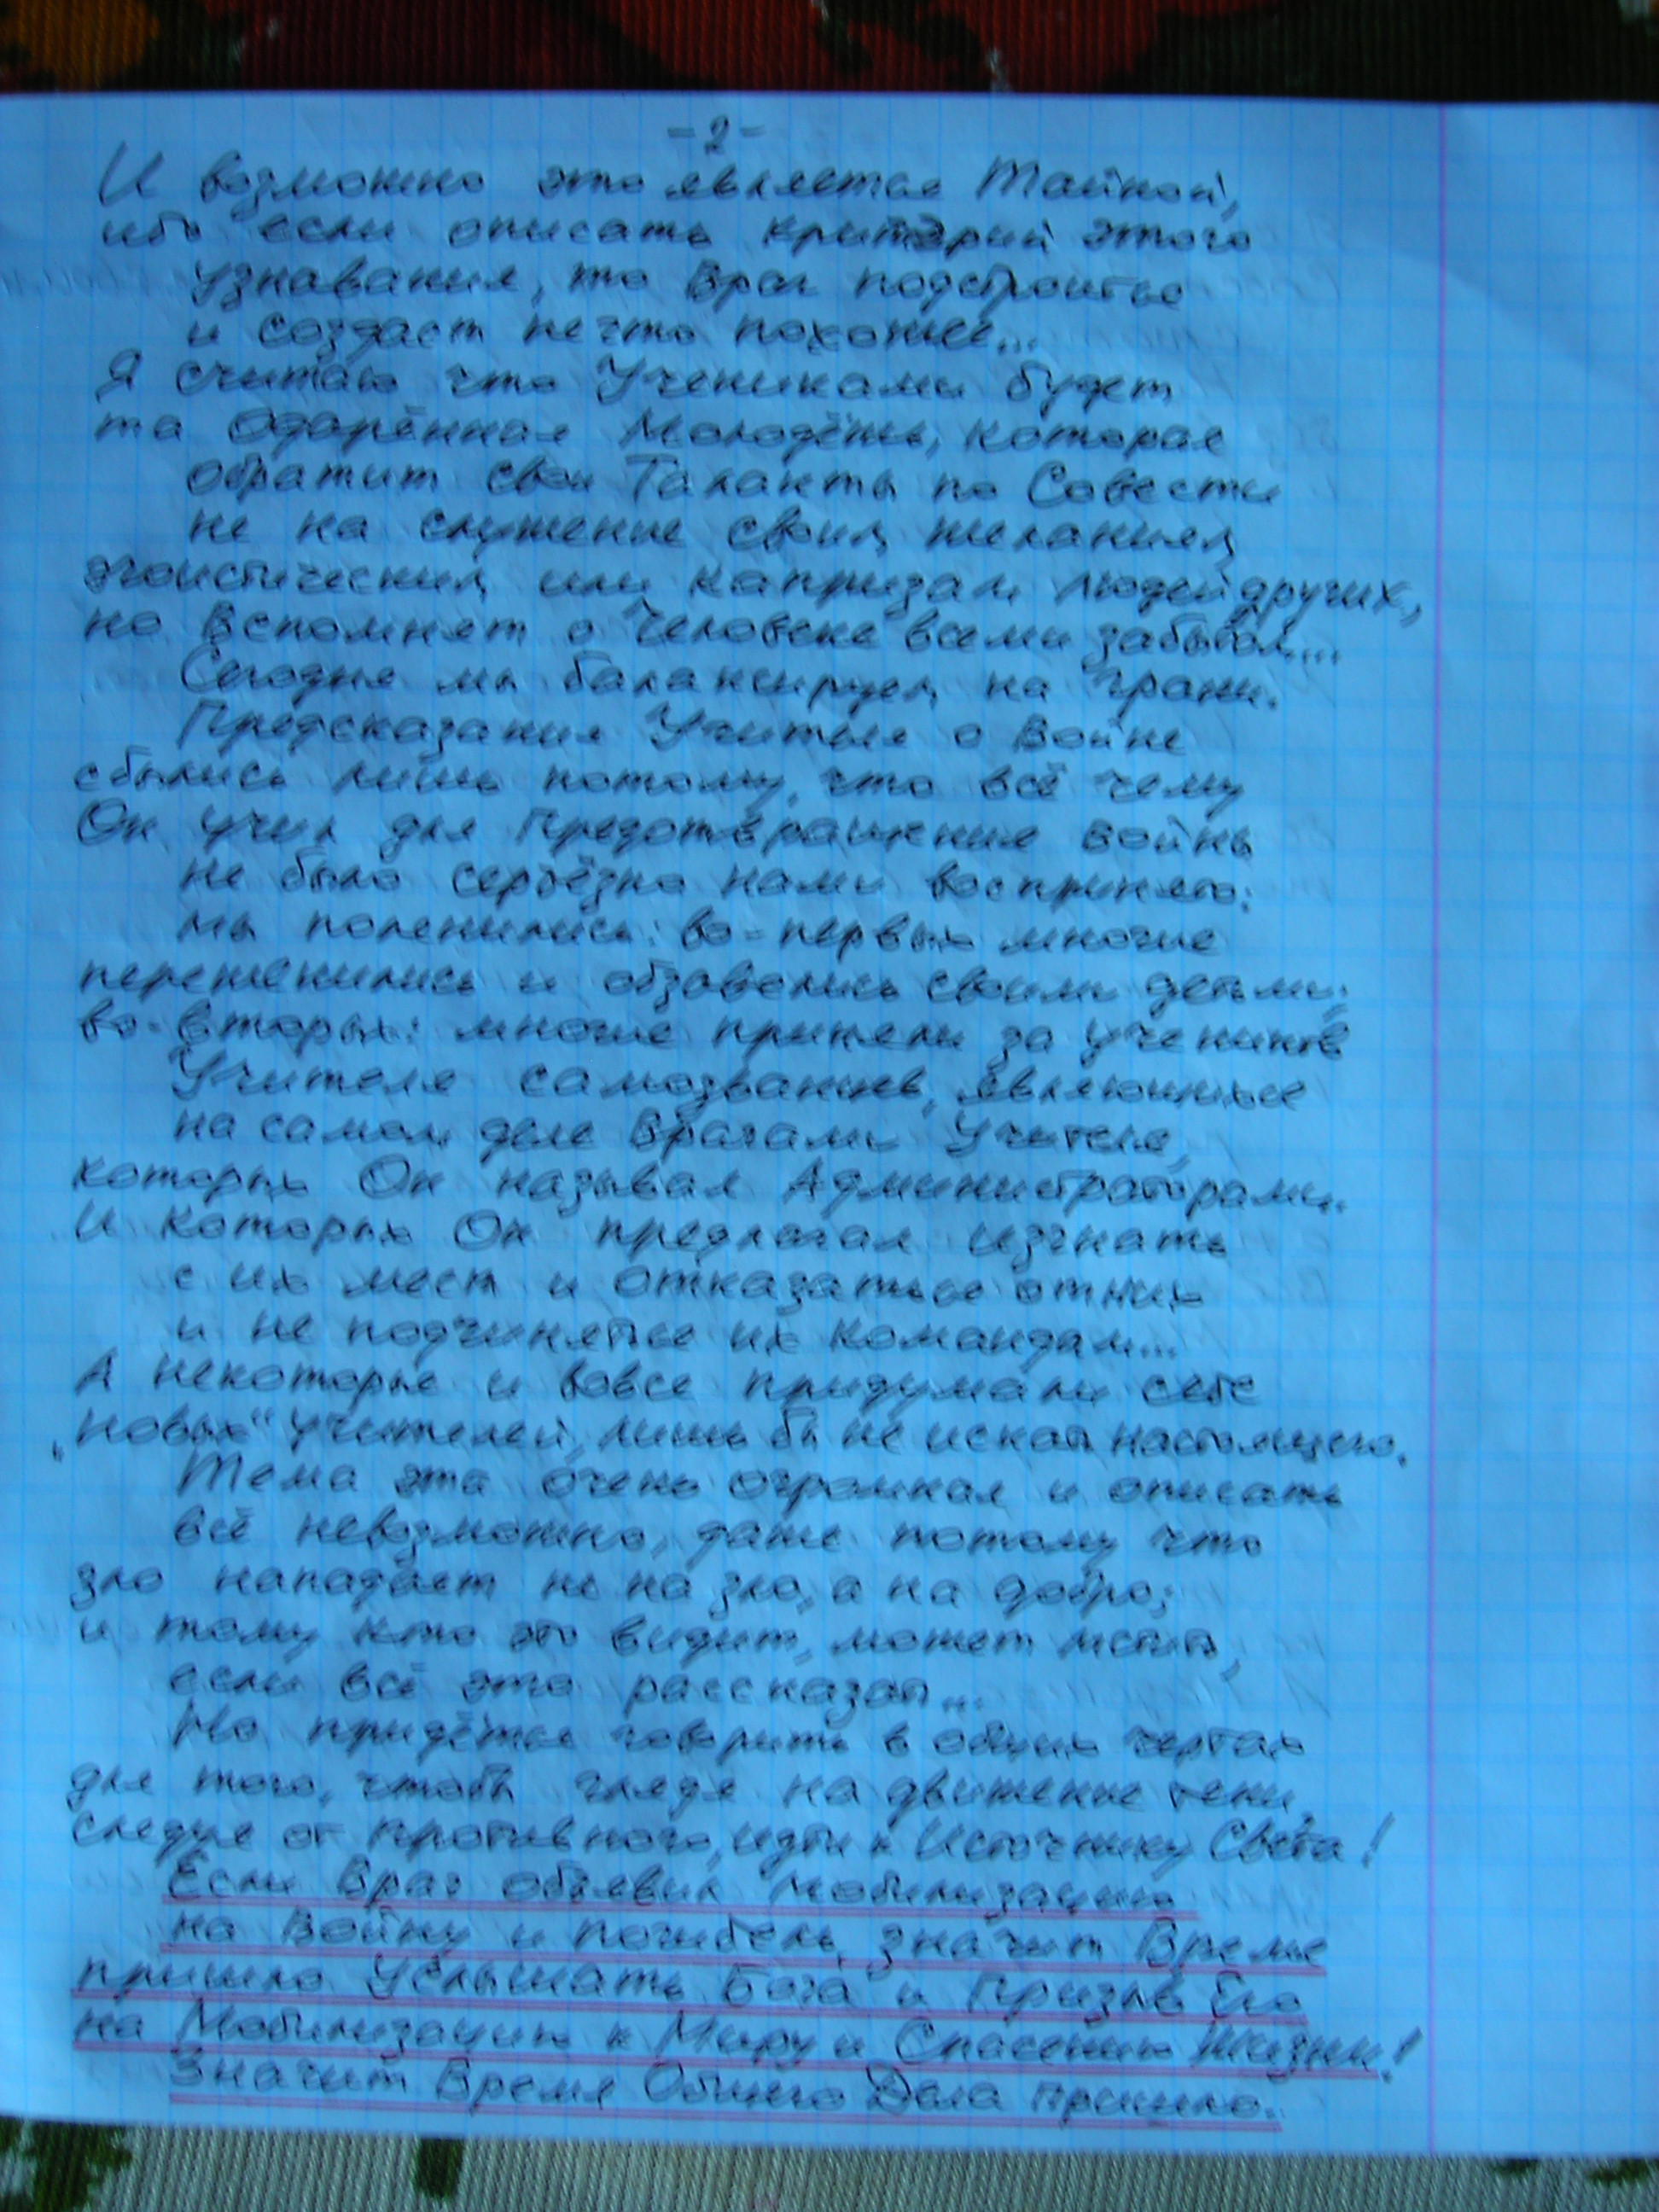 -2-
И возможно это является Тайной,
ибо если описать критэрий этого
узнавания, то Враг подстроится
и создаст нечто похожее...
Я считаю что Учениками будет
та Одарённая Молодёжь, которая
обратит свои Таланты по Совести
не на служение своим желаниям
эгоистическим или капризам людей других,
но Вспомнят о Человеке всеми забытом...
Сегодня мы балансируем на грани.
Предсказания Учителя о Войне
сбылись лишь потому, что всё чему
Он учил для Предотвращения Войны
не было серьёзно нами воспринято:
мы поленились: во-первых многие
переженились и обзавелись своими детьми;
во-вторых: многие приняли за учеников
Учителя самозванцев, являющихся
на самом деле Врагами Учителя,
которых Он называл Администраторами..
И которых Он предлагал изгнать
с их мест и отказаться от них
и не подчиняться их командам...
А некоторые и вовсе придумали себе
„новых" учителей, лишь бы не искать настоящего.
Тема эта очень огромная и описать
всё невозможно, даже потому что
зло нападает не на зло, а на добро;
и тому кто это видит, может мстить,
если всё это рассказать...
Но придётся говорить в общих чертах
для того, чтобы глядя на движение тени,
следуя от противного, идти к Источнику Света!
Если Враг объявил мобилизацию
на Войну и погибель, значит Время
пришло Услышать Бога и Призыв Его
на Мобилизацию к Миру и Спасению Жизни!
Значит Время Общего Дела пришло.